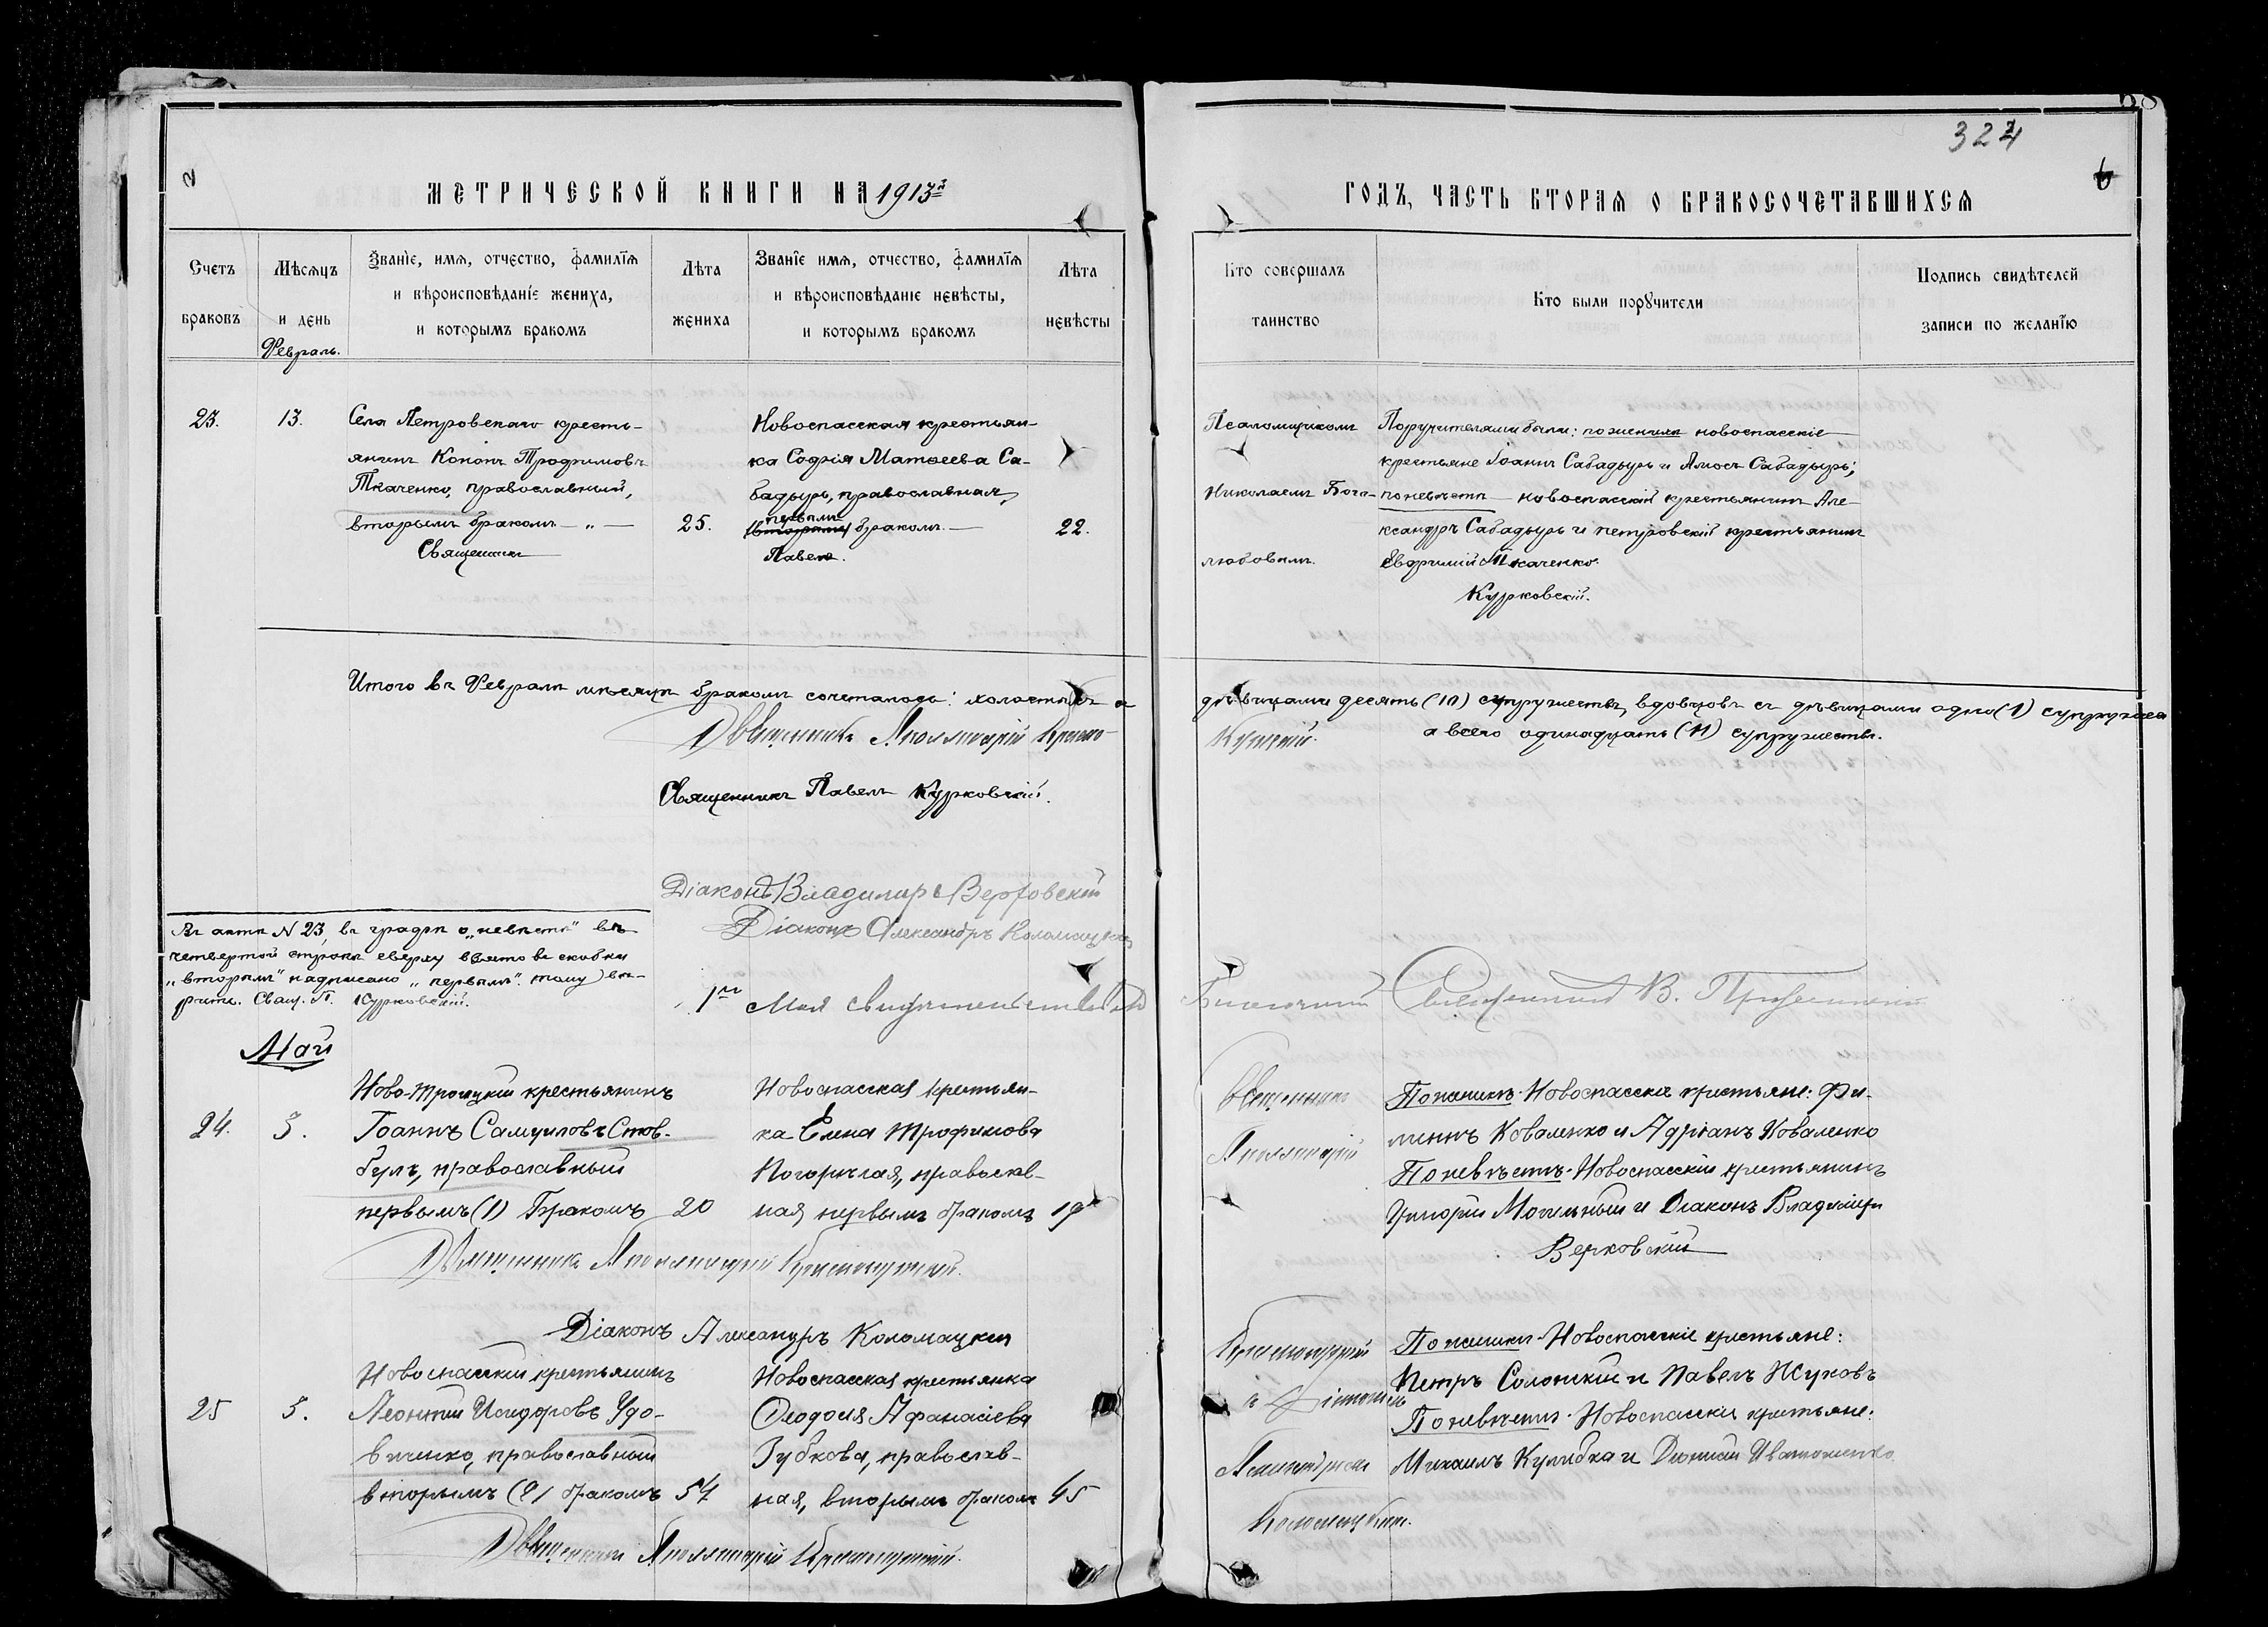 324
6
МЕТРИЧЕСКОЙ КНИГИ НА 1913й
ГОДЪ, ЧАСТЬ ВТОРАЯ О БРАКОСОЧЕТАВШИХСЯ
Счетъ браковъ
Мѣсяцъ и день
Званіе, имя, отчество, фамилія
и вѣроисповѣданіе жениха,
и которымъ бракомъ
Лѣта жениха
Званіе имя, отчество, фамилія
и вѣроисповѣданіе невѣсты,
и которымъ бракомъ
Лѣта невѣсты
Кто совершалъ таинство
Кто были поручители
Подпись свидѣтелей
записи по желанію
Февраль.
23.
13.
Села Петровскаго кресть-
янинъ Кононъ Трофимовъ
Ткаченко, православный,
вторымъ бракомъ — „ —
25.
Новоспасская крестьян-
ка Софія Матѳеева Са-
бадырь, православная,
первымъ
(вторымъ) бракомъ.—
22.
Священникъ
Павелъ
Псаломщикомъ
Николаемъ Бого-
любовымъ.
Поручителями были: по женихѣ новоспасскіе
крестьяне Іоаннъ Сабадырь и Амосъ Сабадырь;
по невѣстѣ — новоспасскій крестьянинъ Але-
ксандръ Сабадырь и петровскій крестьянинъ
Евфимій Ткаченко.
Курковскій.
Итого въ Февралѣ мѣсяцѣ бракомъ сочеталось: холостыхъ съ
дѣвицами десять (10) супружествъ, вдовцовъ съ дѣвицами одно (1) супружес
а всего одинадцать (11) супружествъ.
Священникъ Аполлинарій Красно-
Кутскій.
Священникъ Павелъ Курковскій.
Діаконъ Владимиръ Верховскій
Діаконъ Александръ Коломацкій
Въ актѣ N 23, въ графѣ о „невѣстѣ" въ
четвертой строкѣ сверху взято въ скобки
„вторымъ" надписано „первымъ". тому вѣ-
рить. Свящ. П. Курковскій.
1го Мая свидѣтельствовалъ
Священникъ В.
Май
24.
3.
Ново-троицкій крестьянинъ
Іоаннъ Самуиловъ Стов-
булъ, православный
первымъ (1) Бракомъ
20
Новоспасская крестьян-
ка Елена Трофимова
Погорѣлая, православ-
ная первымъ бракомъ
19
Священникъ
Аполлинарій
По женихѣ Новоспасскіе крестьяне: Фи-
липпъ Коваленко и Адріанъ Коваленко
По невѣстѣ Новоспасскій крестьянинъ
Григорій Могильный и Діаконъ Владиміръ
Верховскій
Священникъ Аполлинарій Краснокутскій.
Діаконъ Александръ Коломацкій
25
5.
Новоспасскій крестьянинъ
Леонтій Исидоровъ Удо-
виченко, православный
вторымъ (2) бракомъ
54
Новоспасская крестьянка
Ѳеодосія Афанасіева
Зубкова, православ-
ная, вторымъ бракомъ
45
Краснокутскій
съ Діакономъ
Александромъ
Коломацкимъ.
По женихѣ Новоспасскіе крестьяне:
Петръ Солоткій и Павелъ Жуковъ
По невѣстѣ Новоспасскіе крестьяне:
Михаилъ Кулибка и Діонисій Иватоненко
Священникъ Аполлинарій Краснокутскій.